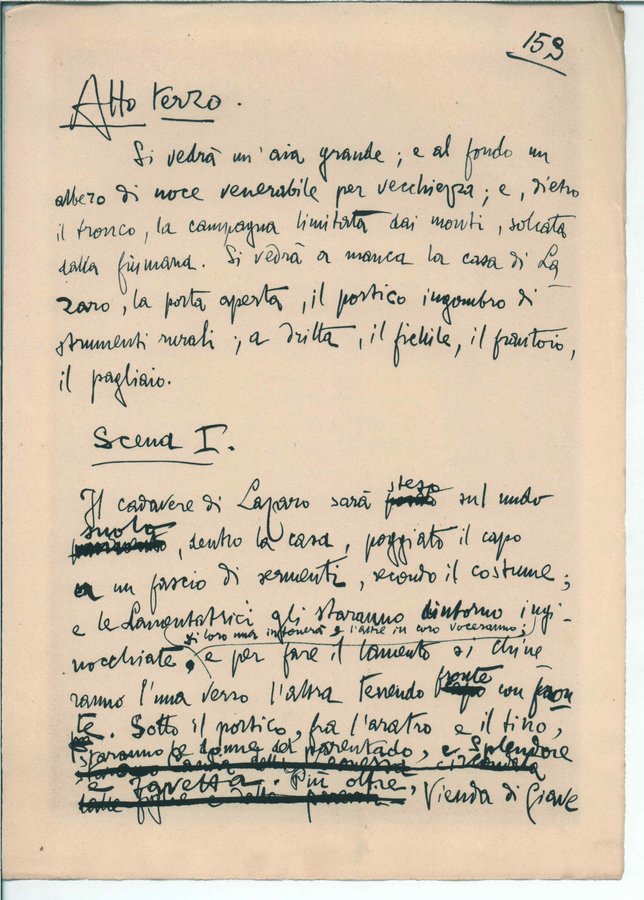 159
Atto terzo.
Si vedrà un'aia grande; e al fondo un
albero di noce venerabile per vecchiezza; e, dietro
il tronco, la campagna limitata dai monti, solcata
dalla fiumana. Si vedrà a manca la casa di La
zaro, la porta aperta, il portico ingombro di
strumenti rurali; a dritta, il fienile, il frantoio,
il pagliaio.
Scena I.
steso
Il cadavere di Lazaro sarà sul nudo
suolo
, dentro la casa, poggiato il capo
a un fascio di sermenti, secondo il costume;
e le Lamentatrici gli staranno dintorno ingi-
di loro una intonerà e l'altre in coro voceranno;
nocchiate, e per fare il lamento si chine
fronte
ranno l'una verso l'altra tenendo con fron
te. Sotto il portico, fra l'aratro e il tino,
staranno le donne del parentado, e Splendore
e Favetta. Più oltre, Vienda di Giave